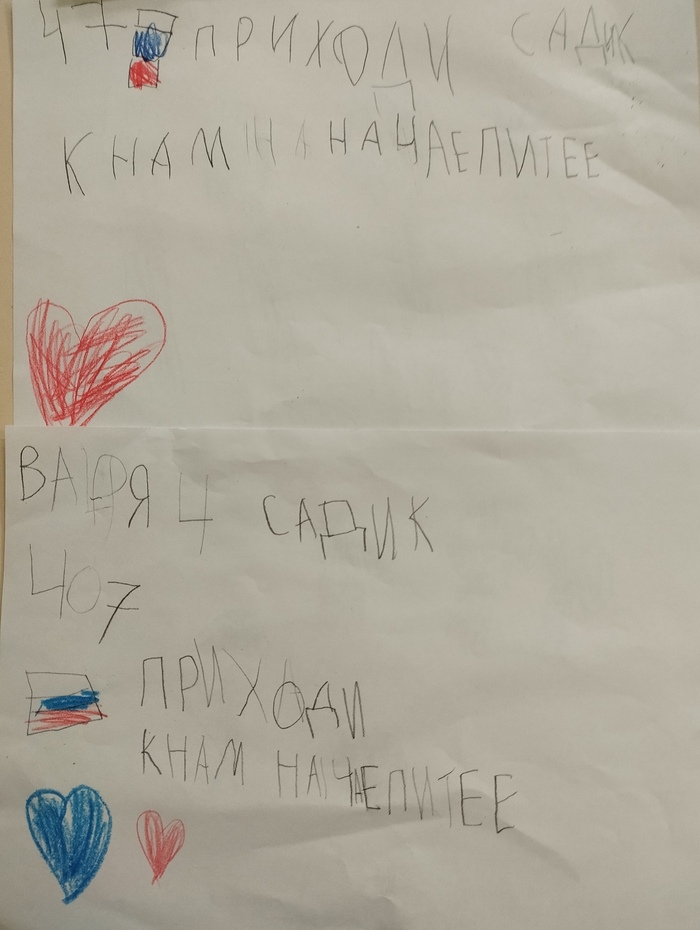 47 ПРИХОДИ САДИК
К НАМ НА НАЧАЕПИТЕЕ
ВАРЯ 4 САДИК
407
ПРИХОДИ
КНАМ НАЧАЕПИТЕЕ